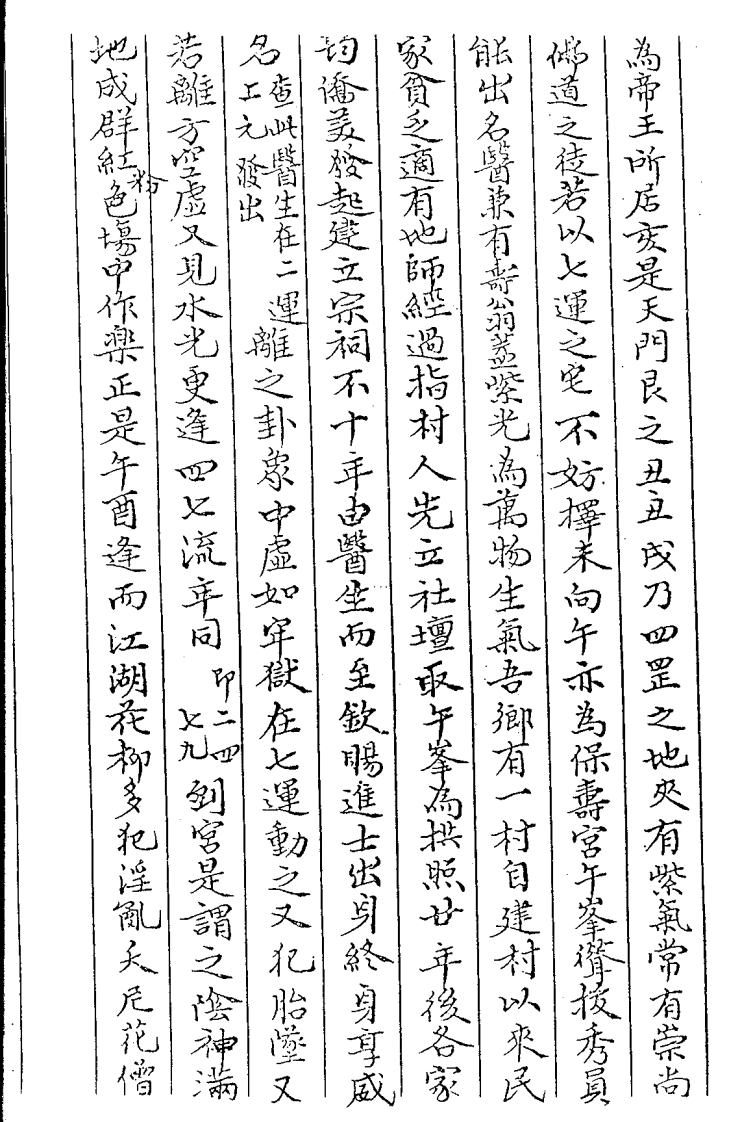 為帝王所居亥是天門艮之丑丑戌乃四罡之地夾有紫氣常有崇尚
佛道之徒若以七運之宅不妨擇未向午亦為保壽宮午峯聳拔秀員
能出名醫兼有壽翁蓋紫光為萬物生氣吾鄉有一村自建村以來民
家貧乏適有地師經過指村人先立社壇取午峯為拱照廿年後各家
均僑美發起建立宗祠不十年由醫生而至欽賜進士出身終身享盛
名
查此醫生在二運
上元發出
離之卦象中虛如牢獄在七運動之又犯胎墮又
若離方空虛又見水光更逢四七流年同
即二四
七九
到宮是謂之陰神滿
地成群紅粉色場中作樂正是午酉逢而江湖花柳多犯淫亂夭尼花僧